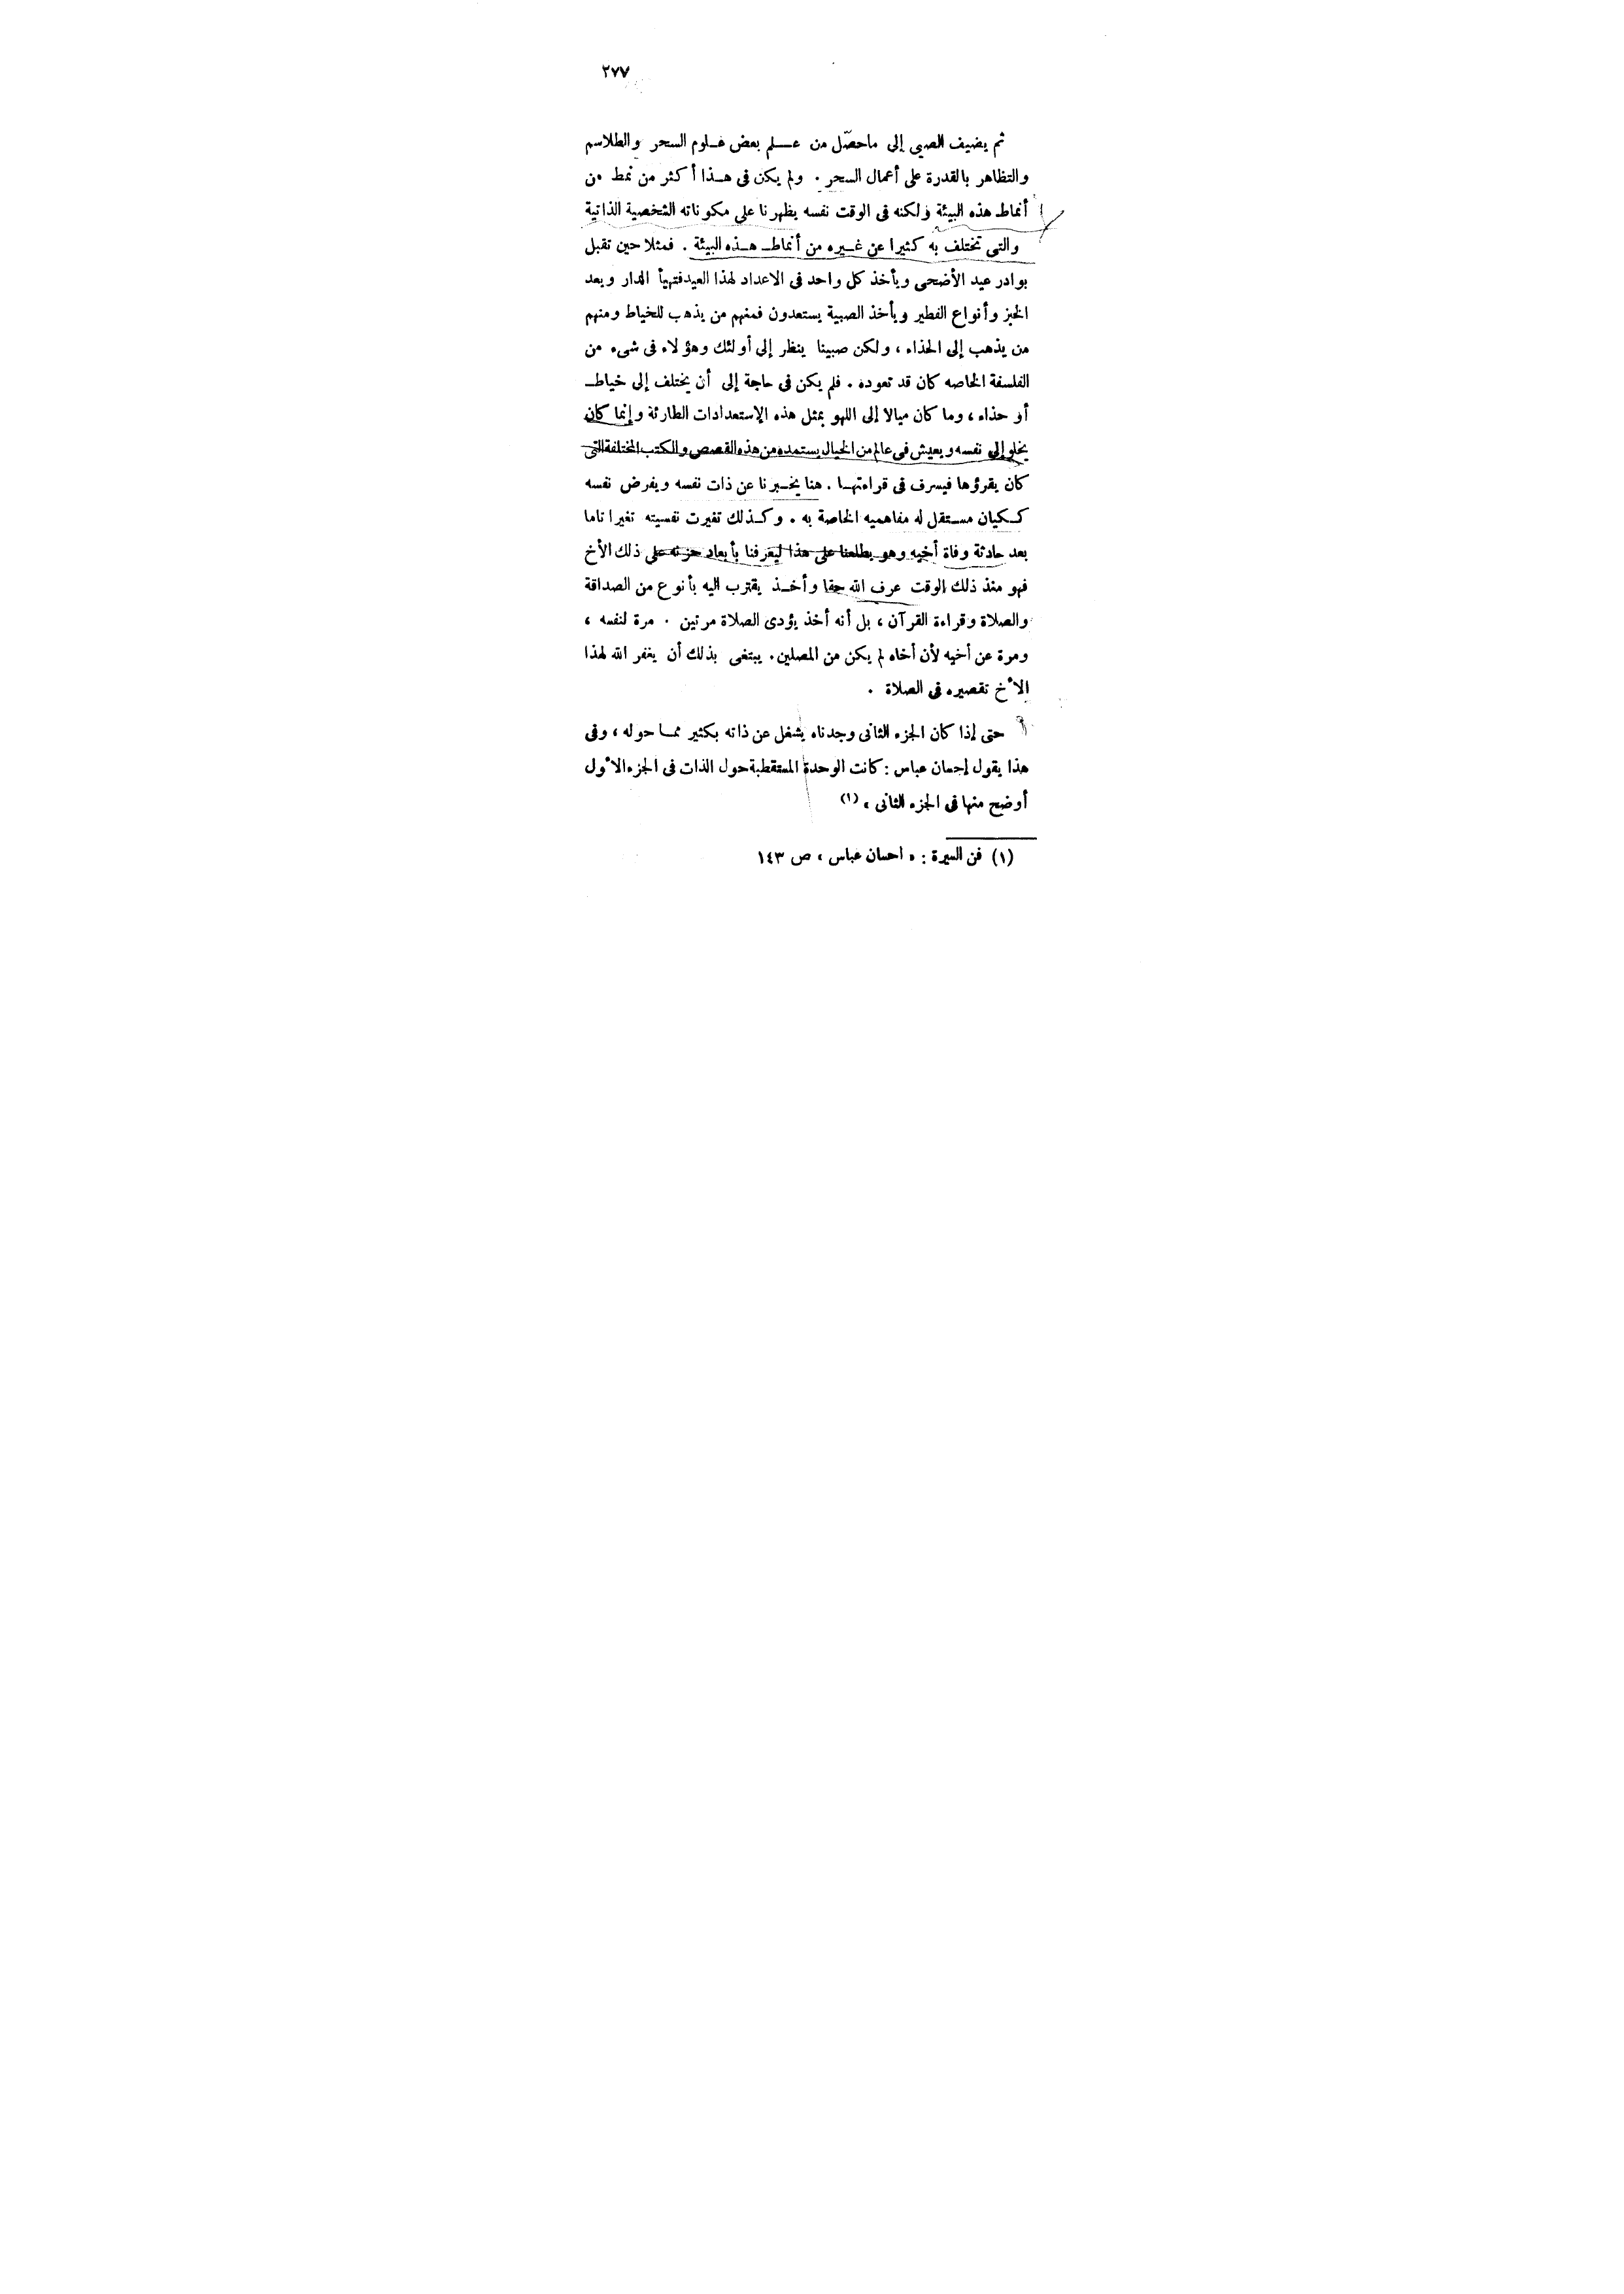 ٢٧٧
ثم يضيف الصبى إلى ماحصّل من علم بعض علوم السحر والطلاسم
والتظاهر بالقدرة على أعمال السحر . ولم يكن فى هذا أكثر من نمط من
أنماط هذه البيئة ولكنه فى الوقت نفسه يظهرنا على مكوناته الشخصية الذاتية
والتى تختلف به كثيرا عن غيره من أنماط هذه البيئة . فمثلا حين تقبل
بوادر عيد الأضحى ويأخذ كل واحد فى الاعداد لهذا العيدفتهيأ الدار ويعد
الخبز وأنواع الفطير ويأخذ الصبية يستعدون فمنهم من يذهب للخياط ومنهم
من يذهب إلى الحذاء ، ولكن صبينا ينظر إلى أولئك وهؤلاء فى شىء من
الفلسفة الخاصه كان قد تعوده . فلم يكن فى حاجة إلى أن يختلف إلى خياط
أو حذاء ، وما كان ميالا إلى اللهو بمثل هذه الإستعدادات الطارئة وإنما كان
يخلو إلى نفسه ويعيش فى عالم من الخيال يستمده من هذه القصص والكتب المختلفة التى
كان يقرؤها فيسرف فى قراءتها . هنا يخبرنا عن ذات نفسه ويفرض نفسه
ككيان مستقل له مفاهميه الخاصة به . وكذلك تغيرت نفسيته تغيرا تاما
بعد حادثة وفاة أخيه وهو يطلعنا على هذا ليعرفنا بأبعاد حزنه على ذلك الأخ
فهو منذ ذلك الوقت عرف الله حقا وأخذ يقترب اليه بأنوع من الصداقة
والصلاة وقراءة القرآن ، بل أنه أخذ يؤدى الصلاة مرتين . مرة لنفسه ،
ومرة عن أخيه لأن أخاه لم يكن من المصلين . يبتغى بذلك أن يغفر الله لهذا
الأخ تقصيره فى الصلاة .
حتى إذا كان الجزء الثانى وجدناه يشغل عن ذاته بكثير مما حوله ، وفى
هذا يقول إحسان عباس : كانت الوحدة المستقطبة حول الذات فى الجزء الأول
أوضح منها فى الجزء الثانى ، (١)
(١) فن السيرة : د احسان عباس ، ص ١٤٣